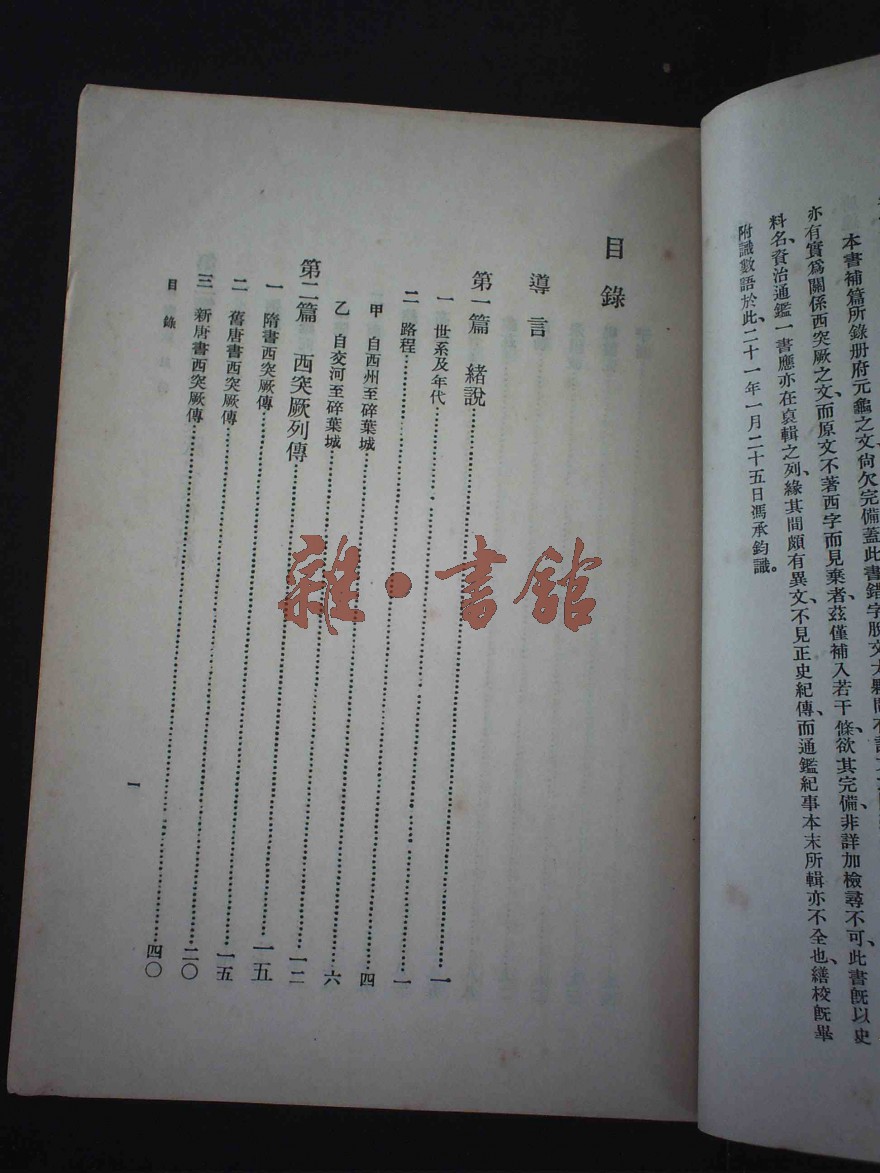 本書補篇所錄册府元龜之文尙欠完備蓋此書錯字脫文太夥間有
亦有實爲關係西突厥之文、而原文不著西字而見棄者、茲僅補入若干條、欲其完備、非詳加檢尋不可、此書旣以史
料名、資治通鑑一書應亦在裒輯之列、緣其間頗有異文、不見正史紀傳、而通鑑紀事本末所輯亦不全也、繕校旣畢
附識數語於此、二十一年一月二十五日馮承鈞識。
目錄
導言
第一篇 緒說……一
一 世系及年代……一
二 路程……四
甲 自西州至碎葉城……六
乙 自交河至碎葉城……一二
第二篇 西突厥列傳……一五
一 隋書西突厥傳……一五
二 舊唐書西突厥傳……二〇
三 新唐書西突厥傳……四〇
目錄
一
雜·書館